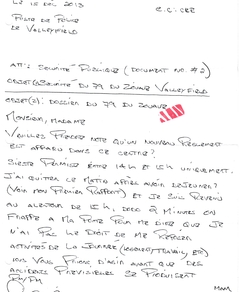 LE 15 DEC 2013
C.C: CRR
POSTE DE POLICE
DE VALLEYFIELD
ATT: SÉCURITÉ PUBLIQUE (DOCUMENT NO. #2)
OBJET: SÉCURITÉ DU 79 DU ZOUAVE VALLEYFIELD
OBJET(2): DOSSIER DU 79 DU ZOUAVE
MONSIEUR, MADAME
VEUILLEZ PRENDRE NOTE QU'UN NOUVEAU RÈGLEMENT
EST AFFICHÉ DANS CE CENTRE?
SIESTE PERMISE ENTRE 14H ET 15H UNIQUEMENT.
J'AI QUITTÉ CE MATIN APRÈS AVOIR DÉJEUNER?
(VOIR MON PREMIER RAPPORT) ET JE SUIS REVENU
AU ALENTOUR DE 15H, 2 MINUTES ON
FRAPPE A MA PORTE POUR ME DIRE QUE JE
N'AI PAS LE DROIT DE ME REPOSER
ACTIVITÉS DE LA JOURNÉE
VOUS PRIENT D'AGIR AVANT QUE DES
ACCIDENTS PRÉVISIBLES SE PRODUISENT